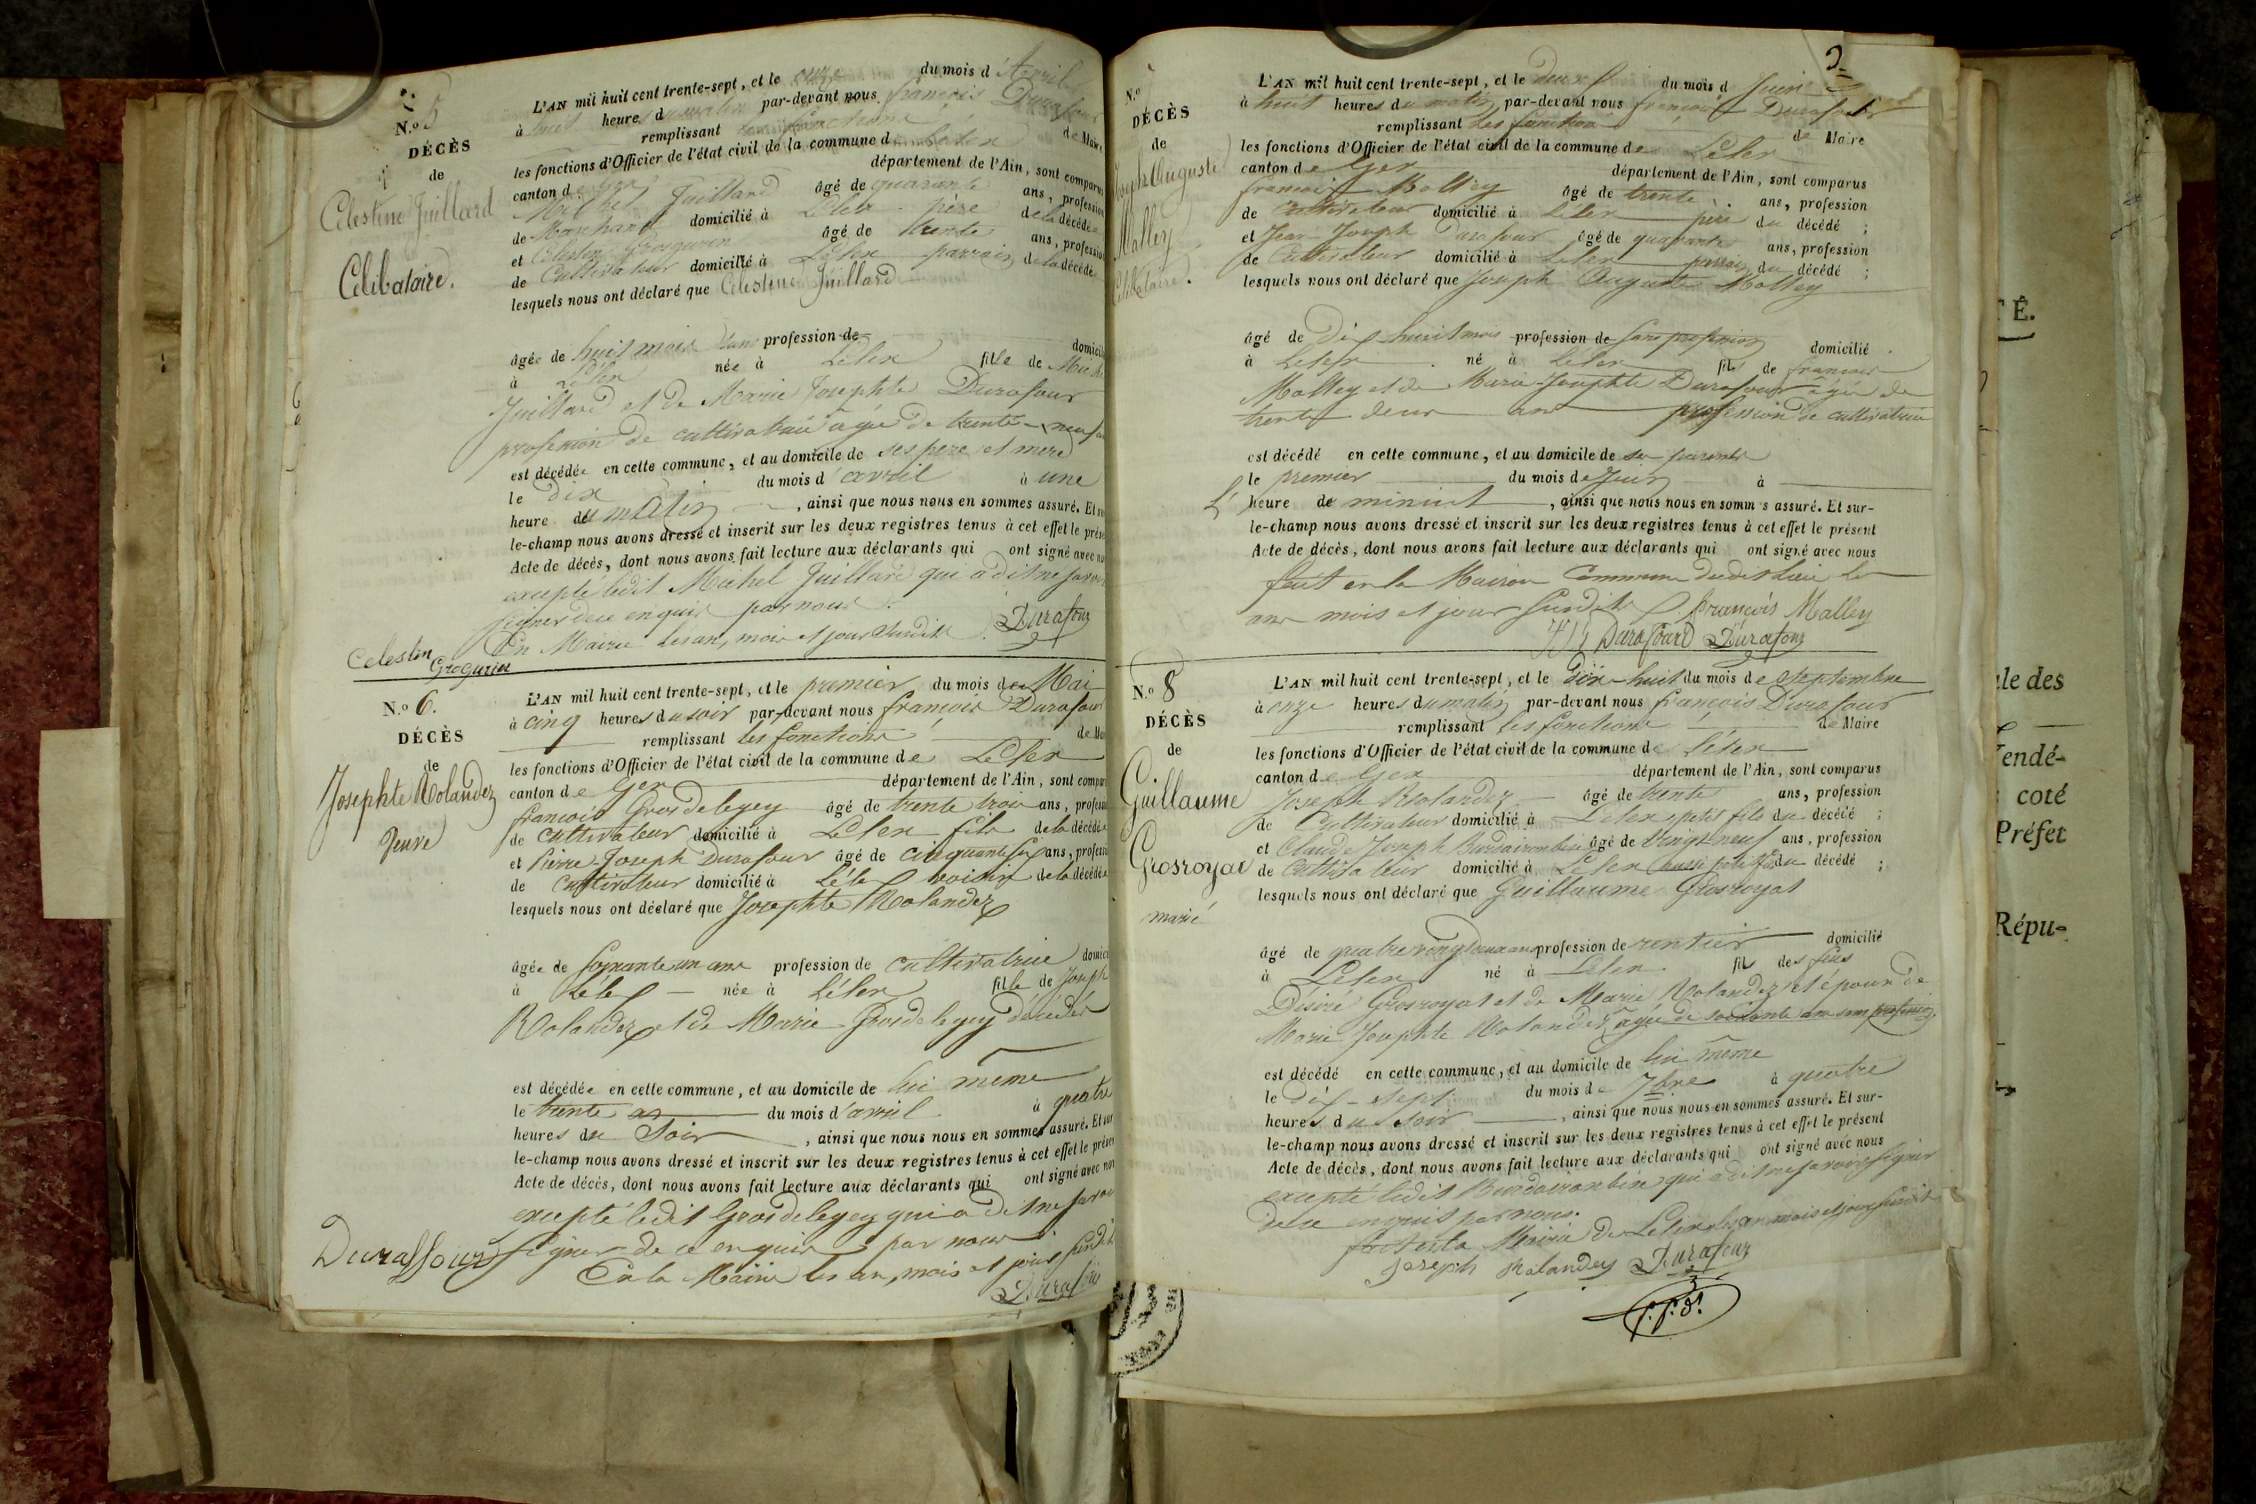 N.º 5
DÉCÈS
de
Celestine Juillard
Célibataire.
L'AN mil huit cent trente-sept, et le onze du mois d'Avril
à huit heures du matin par-devant nous françois Durafour
remplissant les fonctions de Maire
les fonctions d'Officier de l'état civil de la commune de Lélex
canton de Gex département de l'Ain, sont comparus
Michel Juillard âgé de quarante ans, profession
de Marchand domicilié à Lélex père de la décédée
et Célestin Grosgurin âgé de trente ans, profession
de Cultivateur domicilié à Lélex parrain de la décédée
lesquels nous ont déclaré que Celestine Juillard
âgée de huit mois sans profession de domicilié
à Lélex née à Lélex fille de Michel
Juillard et de Marie Josephte Durafour
profession de cultivatrice agée de trente-neuf ans
est décédée en cette commune, et au domicile de ses pere et mere
le dix du mois d'avril à une
heure du matin, ainsi que nous nous en sommes assuré. Et sur-
le-champ nous avons dressé et inscrit sur les deux registres tenus à cet effet le présent
Acte de décès, dont nous avons fait lecture aux déclarants qui ont signé avec nous
excepté ledit Michel Juillard qui a dit ne savoir
signer de ce enquis par nous.
En Mairie les an, mois et jour susdits Durafour
Celestin Grogurin
N.º 6.
DÉCÈS
de
Josephte Rolandez
Veuve
L'AN mil huit cent trente-sept, et le premier du mois de Mai
à cinq heures du soir par-devant nous françois Durafour
remplissant les fonctions de Maire
les fonctions d'Officier de l'état civil de la commune de Lélex
canton de Gex département de l'Ain, sont comparus
françois Grosdelegey âgé de trente trois ans, profession
de cultivateur domicilié à Lélex fils de la décédée
et Pierre-Joseph Durafour âgé de cinquante six ans, profession
de cultivateur domicilié à Lélex voisin de la décédée
lesquels nous ont déclaré que Josephte Rolandez
âgée de soixante un ans profession de cultivatrice domicilié
à Lélex née à Lélex fille de Joseph
Rolandez et de Marie Grosdelegey décédés
est décédée en cette commune, et au domicile de lui même
le trente du mois d'avril à quatre
heures du Soir, ainsi que nous nous en sommes assuré. Et sur-
le-champ nous avons dressé et inscrit sur les deux registres tenus à cet effet le présent
Acte de décès, dont nous avons fait lecture aux déclarants qui ont signé avec nous
excepté ledit Grosdelegey qui a dit ne savoir
signer de ce enquis par nous.
En la Mairie les an, mois et jour susdits
Duraffourd Durafour
3
N.º
DÉCÈS
de
Joseph Auguste
Malley
Célibataire.
L'AN mil huit cent trente-sept, et le deux du mois de Juin
à huit heures du matin par-devant nous françois Durafour
remplissant les fonctions de Maire
les fonctions d'Officier de l'état civil de la commune de Lélex
canton de Gex département de l'Ain, sont comparus
francois Malley âgé de trente ans, profession
de cultivateur domicilié à Lélex père du décédé ;
et Jean Joseph Durafour âgé de quarante ans, profession
de Cultivateur domicilié à Lélex parrain du décédé ;
lesquels nous ont déclaré que Joseph Auguste Malley
âgé de Dix huit mois profession de sans profession domicilié
à Lelex né à Lélex fils de francois
Malley et de Marie Josephte Durafour agée de
trente deux ans profession de cultivatrice
est décédé en cette commune, et au domicile de ses parents
le premier du mois de Juin à
L' heure de minuit, ainsi que nous nous en sommes assuré. Et sur-
le-champ nous avons dressé et inscrit sur les deux registres tenus à cet effet le présent
Acte de décès, dont nous avons fait lecture aux déclarants qui ont signé avec nous
fait en la Maison Commune dudit lieu les
an mois et jour susdits françois Malley
Durafourd Durafour
N.º 8
DÉCÈS
de
Guillaume
Grosroyat
marié
L'AN mil huit cent trente-sept, et le dix-huit du mois de septembre
à onze heures du matin par-devant nous françois Durafour
remplissant les fonctions de Maire
les fonctions d'Officier de l'état civil de la commune de Lélex
canton de Gex département de l'Ain, sont comparus
Joseph Rolandez âgé de trente ans, profession
de Cultivateur domicilié à Lélex petit fils du décédé ;
et Claude Joseph âgé de vingt neuf ans, profession
de cultivateur domicilié à Lélex aussi petit fils du décédé ;
lesquels nous ont déclaré que Guillaume Grosroyat
âgé de quatre vingt deux ans profession de rentier domicilié
à Lélex né à Lélex fils des feus
Désiré Grosroyat et de Marie Rolandez et époux de
Marie Josephte Rolandez agée de soixante ans sans profession.
est décédé en cette commune, et au domicile de lui même
le Dix-sept du mois de 7bre à quatre
heures du soir, ainsi que nous nous en sommes assuré. Et sur-
le-champ nous avons dressé et inscrit sur les deux registres tenus à cet effet le présent
Acte de décès, dont nous avons fait lecture aux déclarants qui ont signé avec nous
excepté ledit qui a dit ne savoir signer
de ce enquis par nous.
fait en la Mairie de Lélex les an mois et jour susdits
Joseph Rolandez Durafour
TÉ.
le des
endé-
coté
Préfet
Répu-